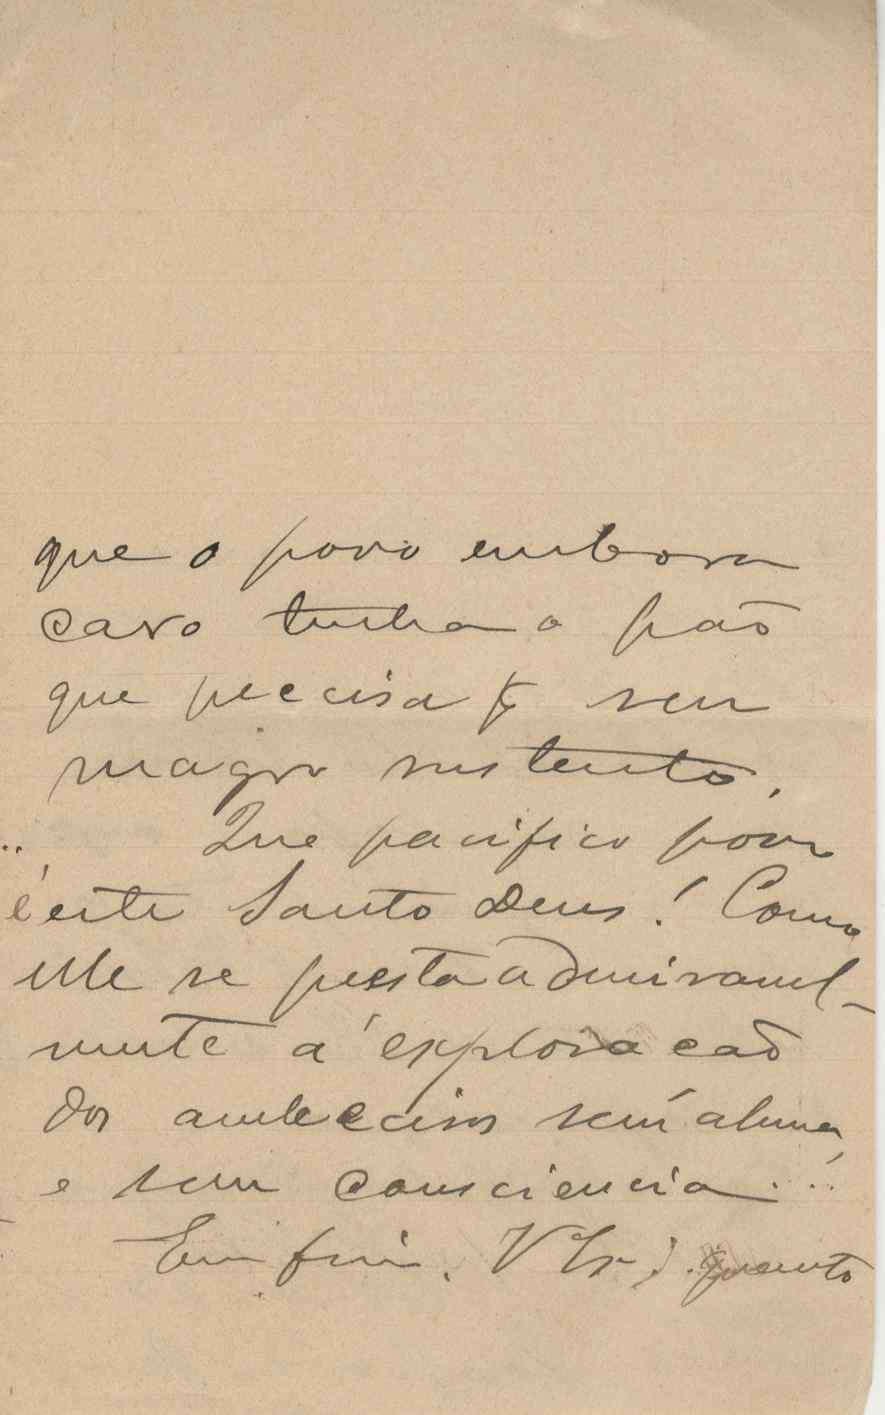 que o povo embora
caro tenha o pão
que precisa p. seu
magro sustento.
Que pacifico povo
é este Santo Deus! Como
elle se presta admiravel-
mente á exploracão
dos ambeciosos sem alma,
e sem consciencia...
Em fim. V Ex